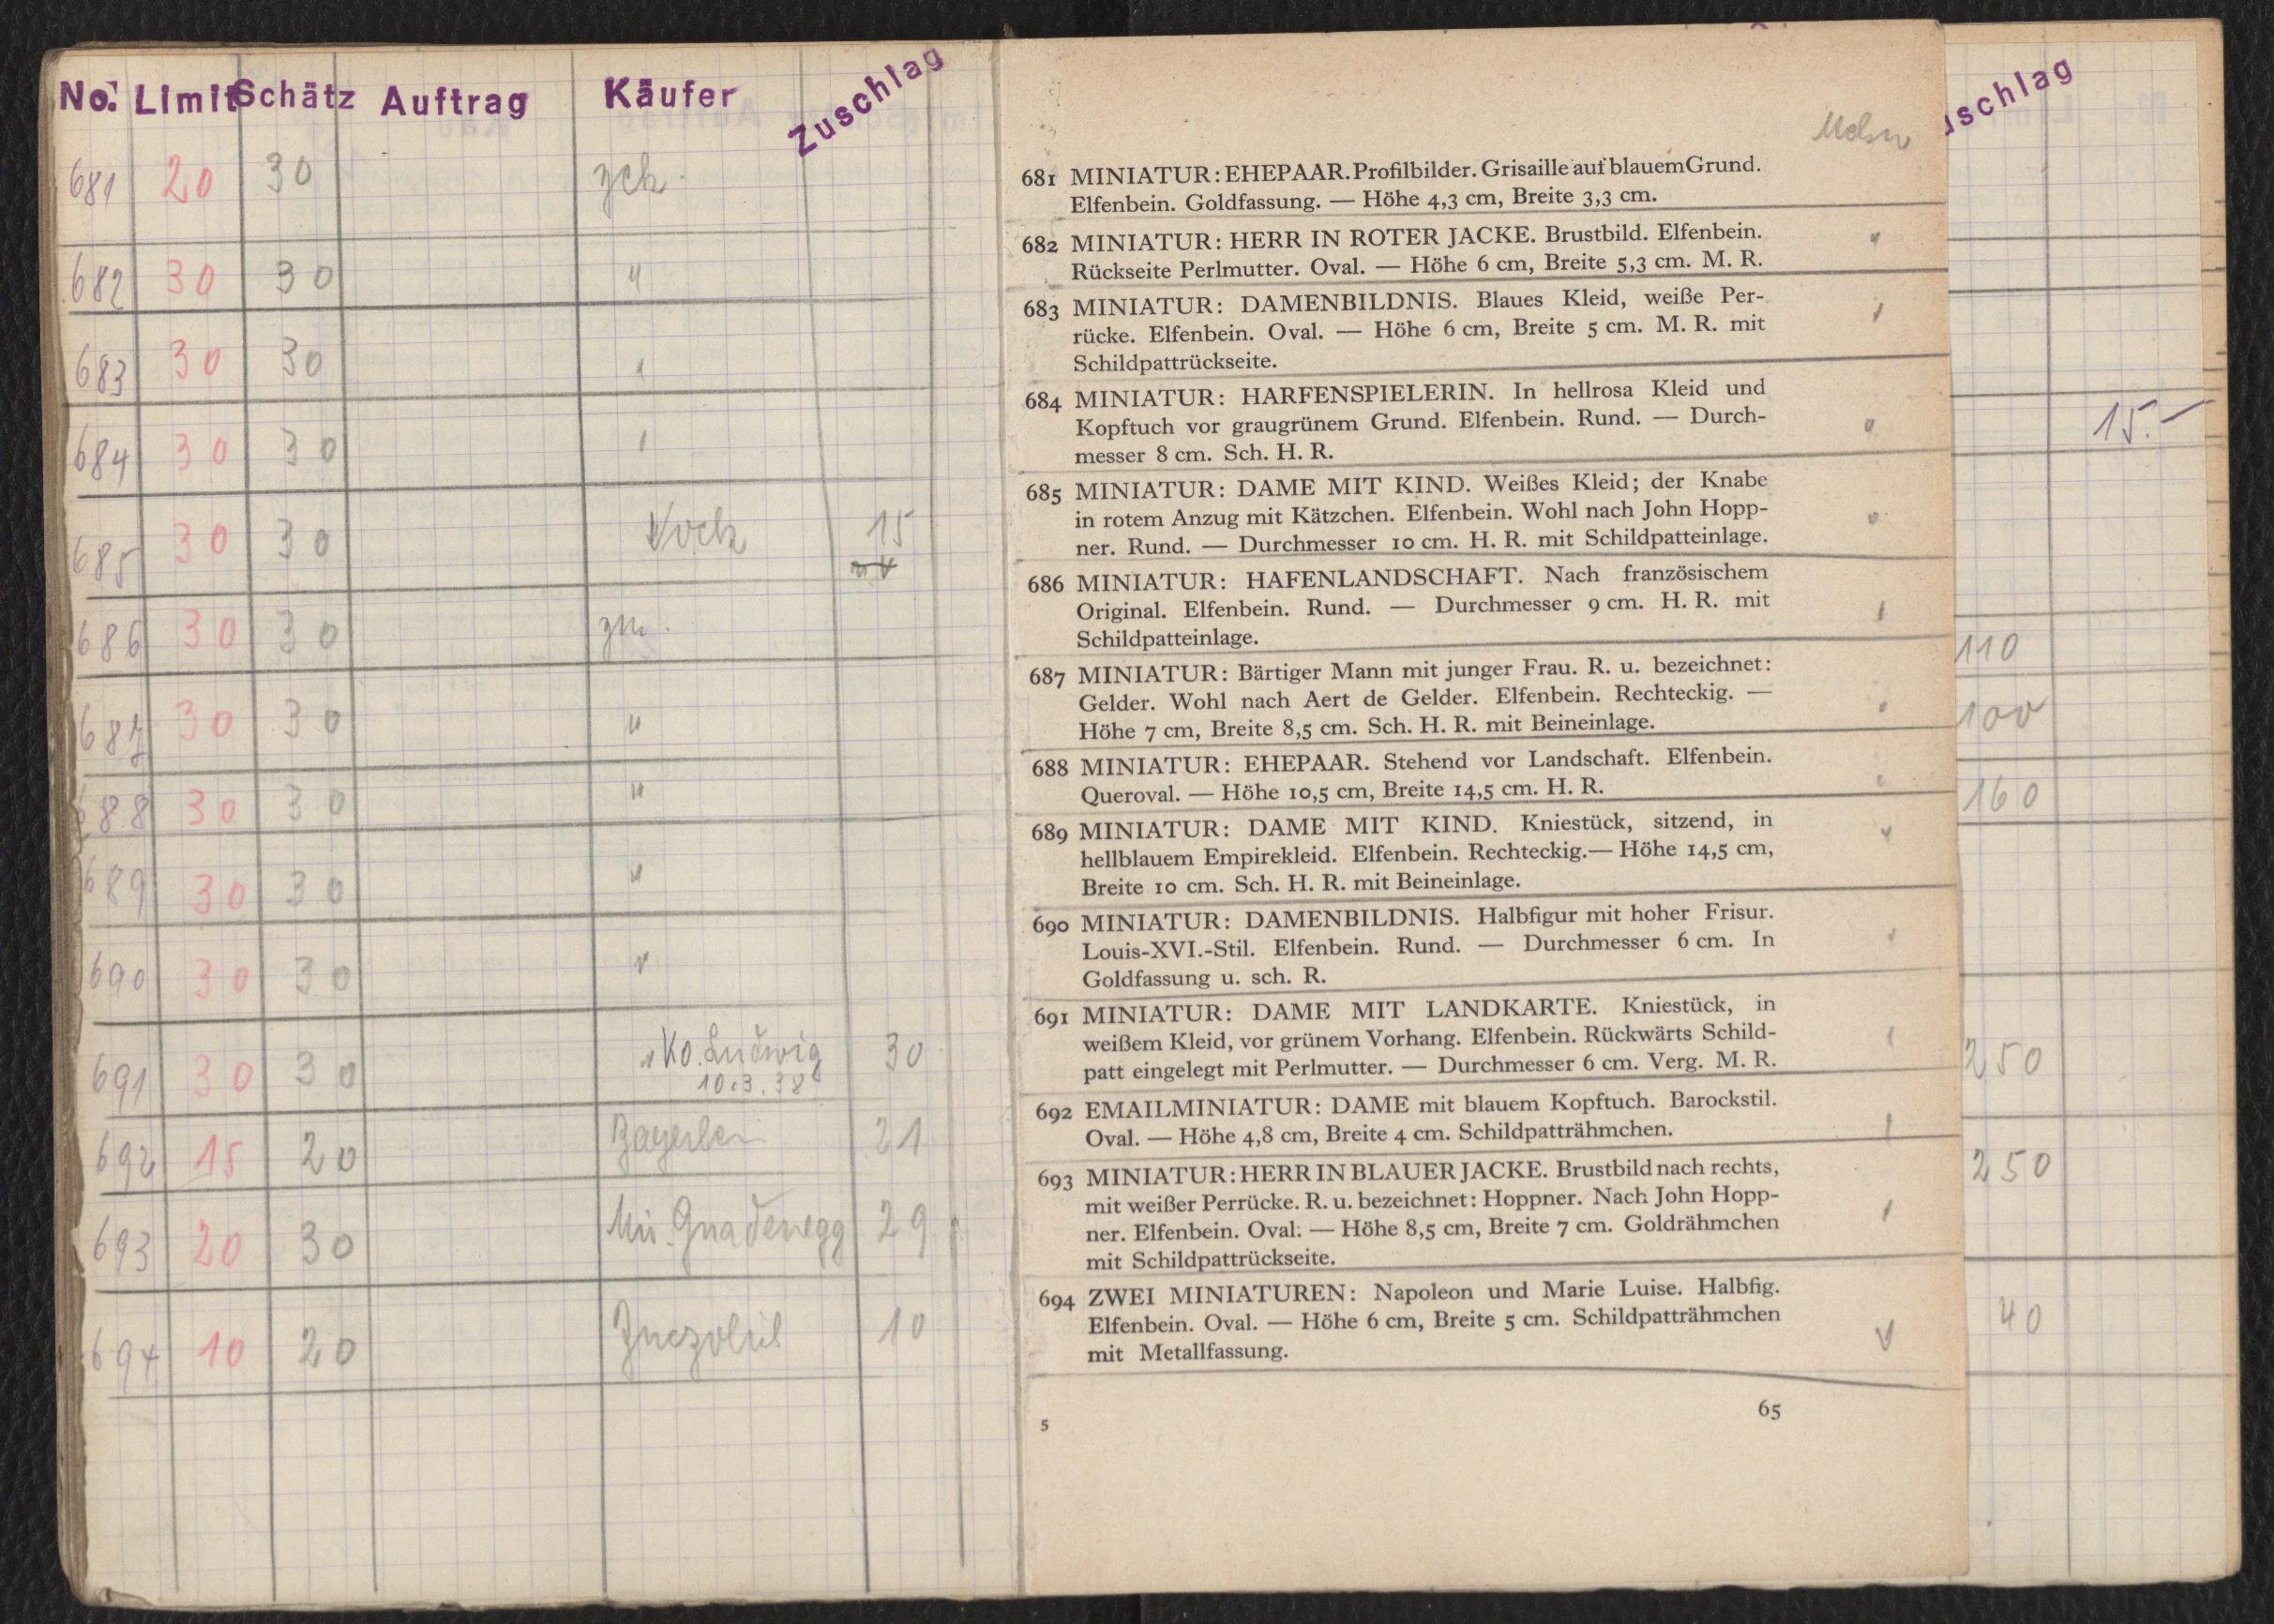 No. Limit Schätz Auftrag Käufer Zuschlag
681 20 30
682 30 30 "
683 30 30 "
684 30 30 "
685 30 30 Koch 15
686 30 30
687 30 30 "
688 30 30 "
689 30 30 "
690 30 30 "
691 30 30 Ko. Ludwig 30
10.3.38
692 15 20 21
693 20 30 Mü. Gnadenegg 29
694 10 20 10
681 MINIATUR: EHEPAAR. Profilbilder. Grisaille auf blauem Grund.
Elfenbein. Goldfassung. — Höhe 4,3 cm, Breite 3,3 cm.
682 MINIATUR: HERR IN ROTER JACKE. Brustbild. Elfenbein.
Rückseite Perlmutter. Oval. — Höhe 6 cm, Breite 5,3 cm. M. R.
683 MINIATUR: DAMENBILDNIS. Blaues Kleid, weiße Per-
rücke. Elfenbein. Oval. — Höhe 6 cm, Breite 5 cm. M. R. mit
Schildpattrückseite.
684 MINIATUR: HARFENSPIELERIN. In hellrosa Kleid und
Kopftuch vor graugrünem Grund. Elfenbein. Rund. — Durch-
messer 8 cm. Sch. H. R.
685 MINIATUR: DAME MIT KIND. Weißes Kleid; der Knabe
in rotem Anzug mit Kätzchen. Elfenbein. Wohl nach John Hopp-
ner. Rund. — Durchmesser 10 cm. H. R. mit Schildpatteinlage.
686 MINIATUR: HAFENLANDSCHAFT. Nach französischem
Original. Elfenbein. Rund. — Durchmesser 9 cm. H. R. mit
Schildpatteinlage.
687 MINIATUR: Bärtiger Mann mit junger Frau. R. u. bezeichnet:
Gelder. Wohl nach Aert de Gelder. Elfenbein. Rechteckig. —
Höhe 7 cm, Breite 8,5 cm. Sch. H. R. mit Beineinlage.
688 MINIATUR: EHEPAAR. Stehend vor Landschaft. Elfenbein.
Queroval. — Höhe 10,5 cm, Breite 14,5 cm. H. R.
689 MINIATUR: DAME MIT KIND. Kniestück, sitzend, in
hellblauem Empirekleid. Elfenbein. Rechteckig. — Höhe 14,5 cm,
Breite 10 cm. Sch. H. R. mit Beineinlage.
690 MINIATUR: DAMENBILDNIS. Halbfigur mit hoher Frisur.
Louis-XVI.-Stil. Elfenbein. Rund. — Durchmesser 6 cm. In
Goldfassung u. sch. R.
691 MINIATUR: DAME MIT LANDKARTE. Kniestück, in
weißem Kleid, vor grünem Vorhang. Elfenbein. Rückwärts Schild-
patt eingelegt mit Perlmutter. — Durchmesser 6 cm. Verg. M. R.
692 EMAILMINIATUR: DAME mit blauem Kopftuch. Barockstil.
Oval. — Höhe 4,8 cm, Breite 4 cm. Schildpatträhmchen.
693 MINIATUR: HERR IN BLAUER JACKE. Brustbild nach rechts,
mit weißer Perrücke. R. u. bezeichnet: Hoppner. Nach John Hopp-
ner. Elfenbein. Oval. — Höhe 8,5 cm, Breite 7 cm. Goldrähmchen
mit Schildpattrückseite.
694 ZWEI MINIATUREN: Napoleon und Marie Luise. Halbfig.
Elfenbein. Oval. — Höhe 6 cm, Breite 5 cm. Schildpatträhmchen
mit Metallfassung.
5 65
uschlag
15.-
110
100
160
250
250
40